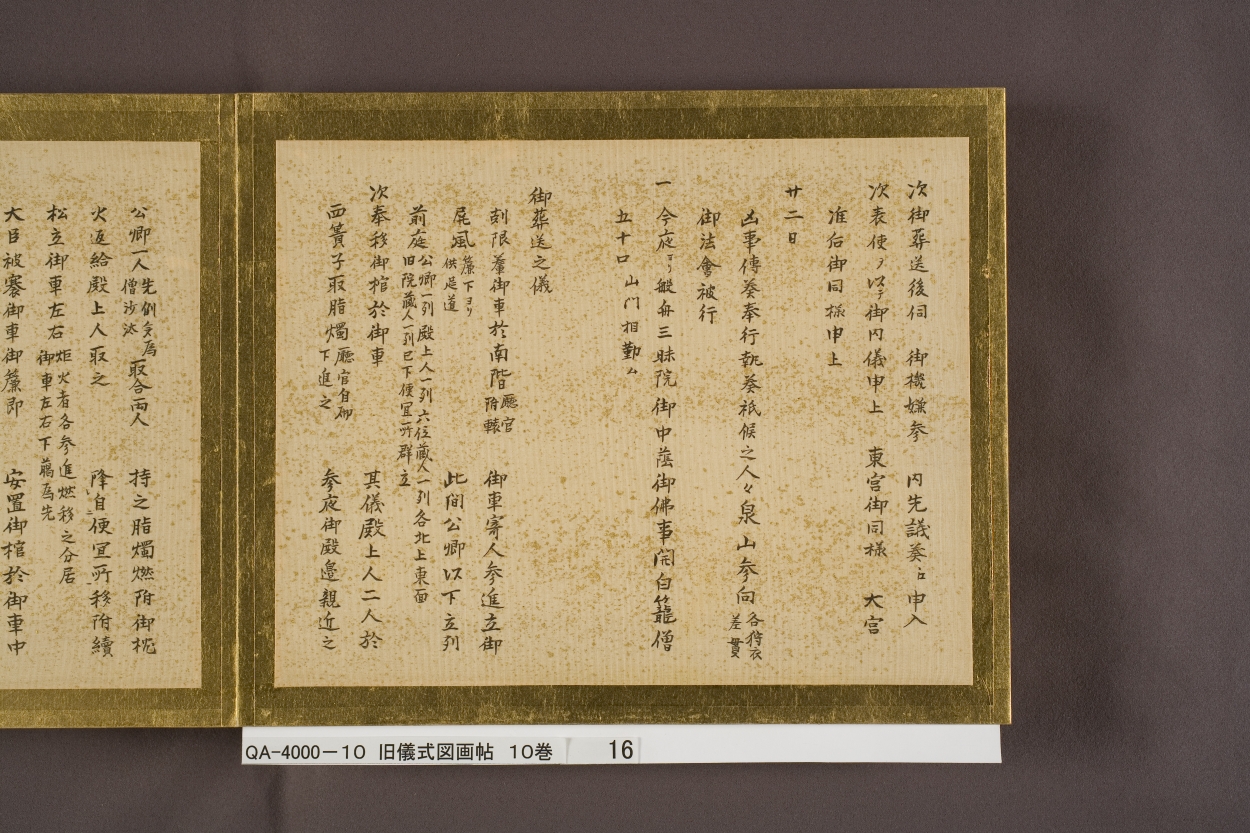 次御葬送後伺 御機嫌参 内先議奏江申入
次表使ヲ以テ御内儀申上 東宮御同様 大宮
准后御同様申上
廿二日
凶事傳奏奉行執奏祇候之人々泉山参向 各狩衣 差貫
御法會被行
一今夜ヨリ般舟三昧院御中蔭御佛事開白籠僧
五十口 山門相勤ム
御葬送之儀
刻限輦御車於南階 廳官 附轅 御車寄人参進立御
屍風 簾下ヨリ 供筵道 此間公卿以下立列
前庭 公卿一列殿上人一列六位蔵人一列各北上東面 旧院蔵人一列已下便宜所群立
次奉移御棺於御車 其儀殿上人二人於
西簀子取脂燭 廳官自砌 下進之 参夜御殿邉親近之
公卿一人 先例多爲 僧沙汰 取合両人 持之脂燭燃附御枕
火返給殿上人取之 降自便宜所移附續
松立御車左右 炬火者各参進燃移之分居 御車左右下臈爲先
大臣被褰御車御簾即 安置御棺於御車中
QA-4000－10 旧儀式図画帖 10巻 16